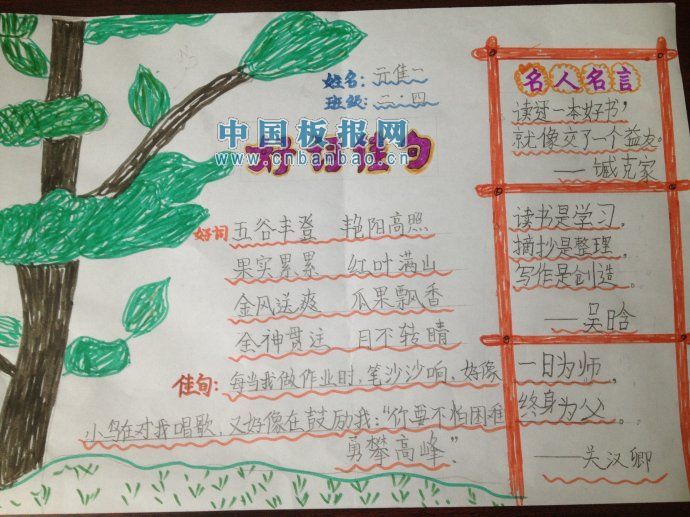 姓名:元佳二
班级:二·四
中国板报网
www.cnbanbao.cn
好词佳句
好词 五谷丰登 艳阳高照
果实累累 红叶满山
金风送爽 瓜果飘香
全神贯注 目不转晴
佳旬:每当我做作业时,笔沙沙响,好像
小鸟在对我唱歌,又好像在鼓励我:“你要不怕困难
勇攀高峰”
名人名言
读过一本好书,
就像交了一个益友。
——臧克家
读书是学习,
摘抄是整理,
写作是创造。
——吴晗
一日为师,
终身为父。
——关汉卿